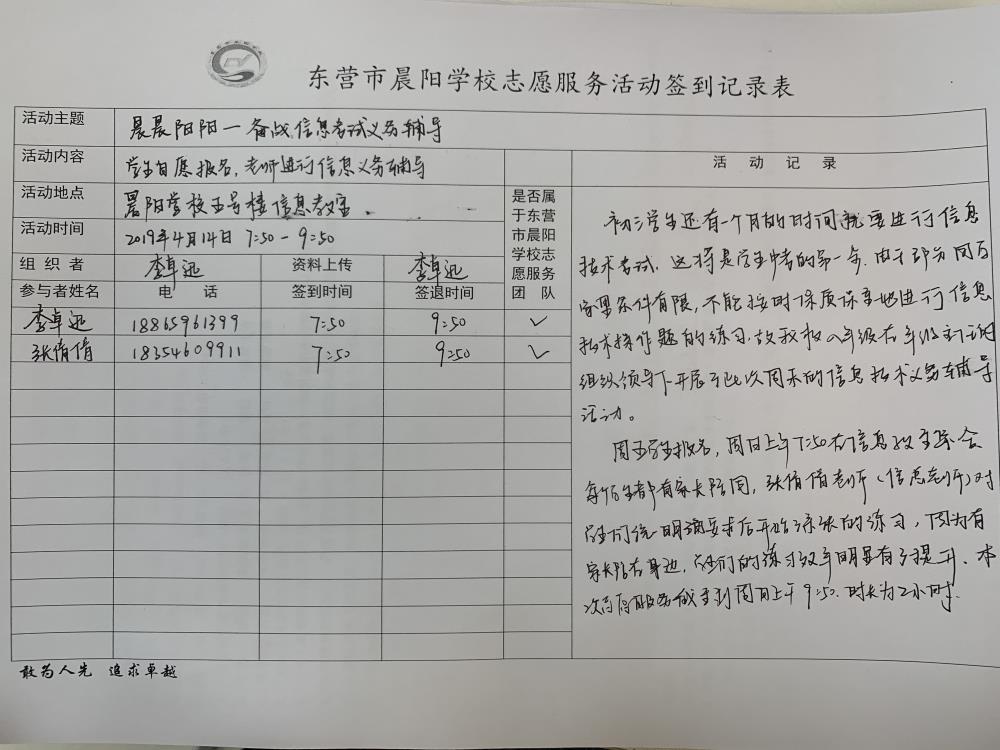 东营市晨阳学校志愿服务活动签到记录表
活动主题 晨晨阳阳一备战信息考试义务辅导
活动内容 学生自愿报名,老师进行信息义务辅导
活动地点 晨阳学校五号楼信息教室.
活动时间 2019年4月14日 7:50-9:50
组织者 李卓迅 资料上传 李卓迅
参与者姓名 电话 签到时间 签退时间
是否属
于东营
市晨阳
学校志
愿服务
团队
李卓迅 18865961399 7:50 9:50 ✓
张倩倩 18354609911 7:50 9:50 ✓
活动记录
初三学生还有一个月的时间就要进行信息
技术考试.这将是学生中考的第一步.由于部分同学
家里条件有限,不能按时保质保量地进行信息
技术操作题的练习.故我校八年级在年级主任的
组织领导下开展了此次周末的信息技术义务辅导
活动。
周五学生报名,周日上午7:50在信息教室集合
每位学生都有家长陪同,张倩倩老师(信息老师)对
学生们统一明确要求后开始紧张的练习,因为有
家长陪在身边,学生们的练习效率明显有了提升.本
次志愿服务截至到周日上午9:50.时长为2小时.
敢为人先 追求卓越